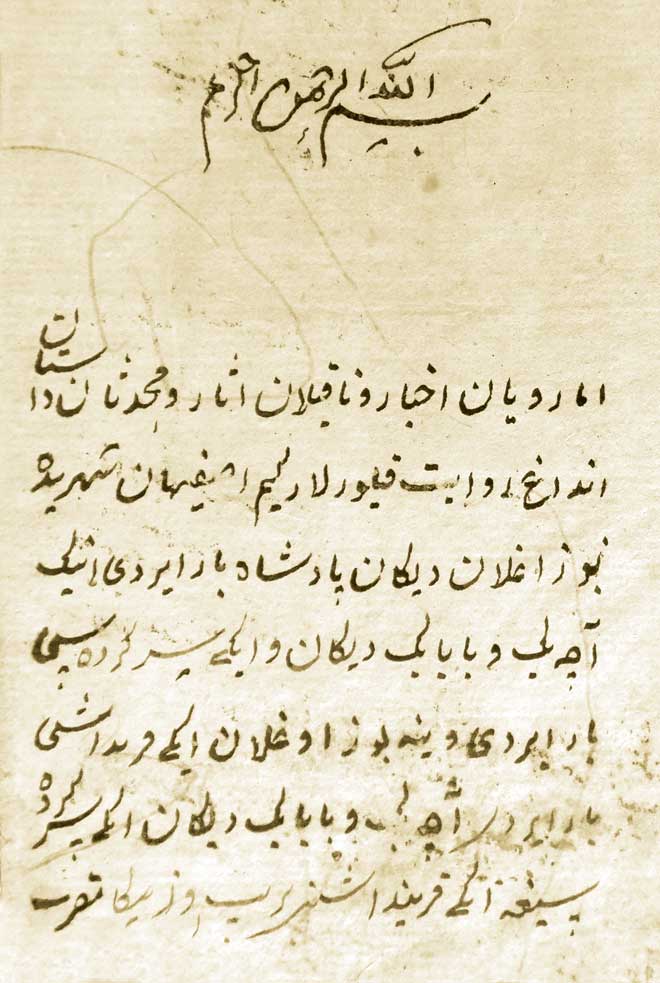 بسم الله الرحمن الرحیم
اما رویان اخبار و ناقیلان اثار و محدثان داستان
انداغ روایت قیلورلار کیم اصفیهان شهریده
بوز اغلان دیکان پادشاه بار ایردی انیک
آچه لی و بابالی دیکان و ایکی سرکرده سی
بار ایردی وینه بوز اوغلان ایکی فرنداشی
بار ایردی آچه لی و بابالی دیکان ایکی سرکرده
سیغه ایکی قرینداشنی بریب اوزیکا